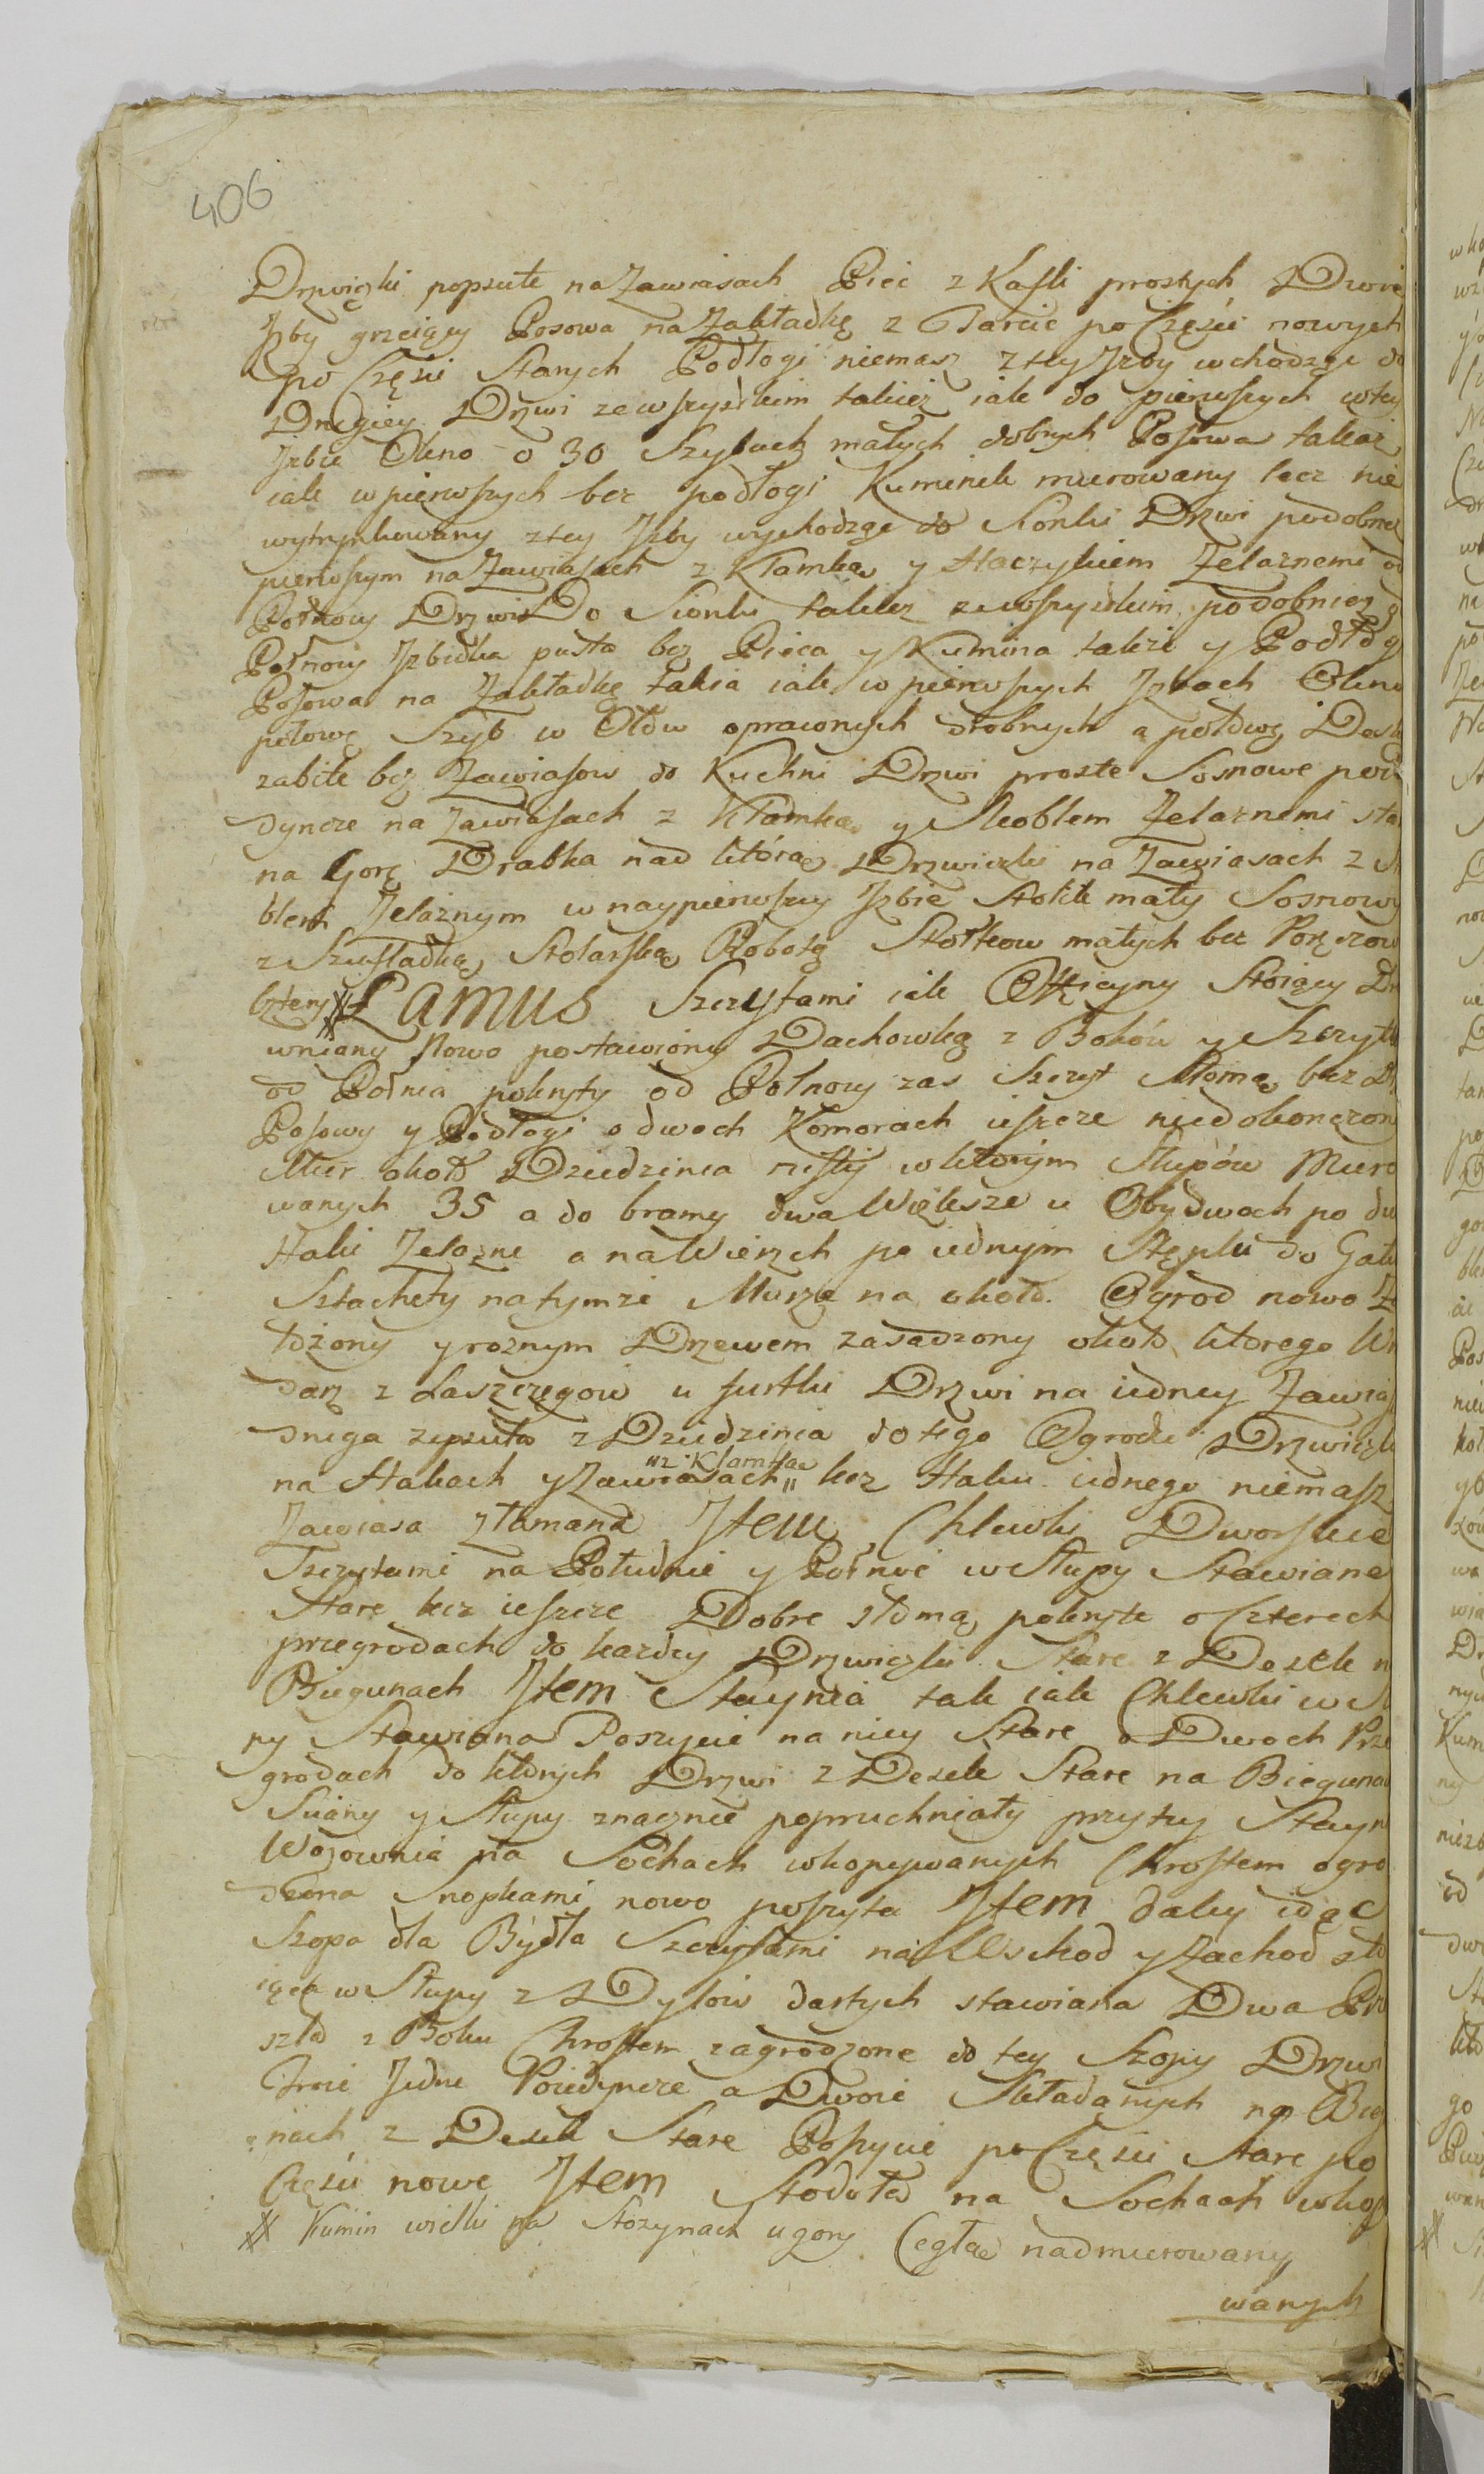 406
Drzwiczki popsute na Zawiasach Piec z Kafli prostych Dwie
Jzby grzeiący Posowa na Zakładkę z Tarcic po Części nowych
po Części Starych Podłogi niemasz z tey Jzby wchodząc do
Drugiey Drzwi zewszystkim takież iak do pierwszych w tey
Jzbie Okno o 30 Szybach małych dobrych Posowa takaż
iak w pierwszych bez podłogi Kuminek murowany lecz nie
wytynkowany z tey Jzby wychodząc do Sionki Drzwi podobne
pierwszym na Zawiasach z Klamką y Haczykiem Zelaznemi od
Połnocy Drzwi Do Sionki także zewszystkim podobnież
Połnocy Jzbidka pusta bez Pieca y Kumina także y Podłog
Posowa na Zakładkę takia iak w pierwszych Jzbach Okno
połowę Szyb w Ołów oprawnych drobnych a połowę Desk
zabite bez Zawiasow do Kuchni Drzwi proste Sosnowe poie
dyncze na Zawiasach z Klamką y Skoblem Zelaznemi sta
na Gorę Drabka nad którą Drzwiczki na Zawiasach z Sk
blem Zelaznym w naypierwszey Jzbie Stolik mały Sosnowy
z Szufladką Stolarską Robotą Stołkow małych bez Poręczow
cztery # Lamus Szczytami iak Officyny Stoiący Dr
wniany Nowo postawiony Dachowką z Boków y Szczyt
od Połnia pokryty od Połnocy zas Szczyt Słomą bez Dr
Posowy y Podłogi o dwoch Komorach ieszcze niedokonczony
Mur około Dziedzinca cisty w którym Słupów Muro
wanych 35 a do bramy dwa Większe u Obydwoch po dw
Haki Zelazne a na Wierzch po iednym Stęplu do Gał
Sztachety na tymże Murze na około. Ogrod nowo Za
łożony y roznym Drzewem zasadzony około ktorego
darz z Laszczęgow u furtki Drzwi na iedney Zawias
druga zepsuta z Dziedzinca do tego Ogrodu Drzwiczk
na Hakach y Zawiasach " z Klamką " lecz Haku iednego niemasz
Zawiasa złamana Jtem Chlewki Dworskie
Szczytami na Południe y Połnoc w Słupy Stawiane
Stare lecz ieszcze Dobre słomą pokryte o Czterech
przegrodach do kazdey Drzwiczki Stare z Desek n
Biegunach Jtem Staynia tak iak Chlewki w Sł
py Stawiana Poszycie na niey Stare o Dwoch Prze
grodach do których Drzwi z Desek Stare na Biegunac
Sciany y Słupy znacznie popruchniały przy tey Stayn
Wozownia na Sochach wkopywanych Chrostem ogro
dzona Snopkami nowo poszyta Jtem daley idąc
Szopa dla Bydła Szczytami na Wschod y Zachod sto
iąca w Słupy z Dylów dartych stawiana Dwa Prz
szła z Boku Chrostem zagrodzone do tey Szopy Drzwi
Troie Jedne Poiedyncze a Dwoie Składanych na Bieg
nach z Desek Stare Poszycie po Części Stare po
Części nowe Jtem Stodoła na Sochach wkop
# Kumin wielki na Stozynach u gory Cegłą nadmurowany
wanych